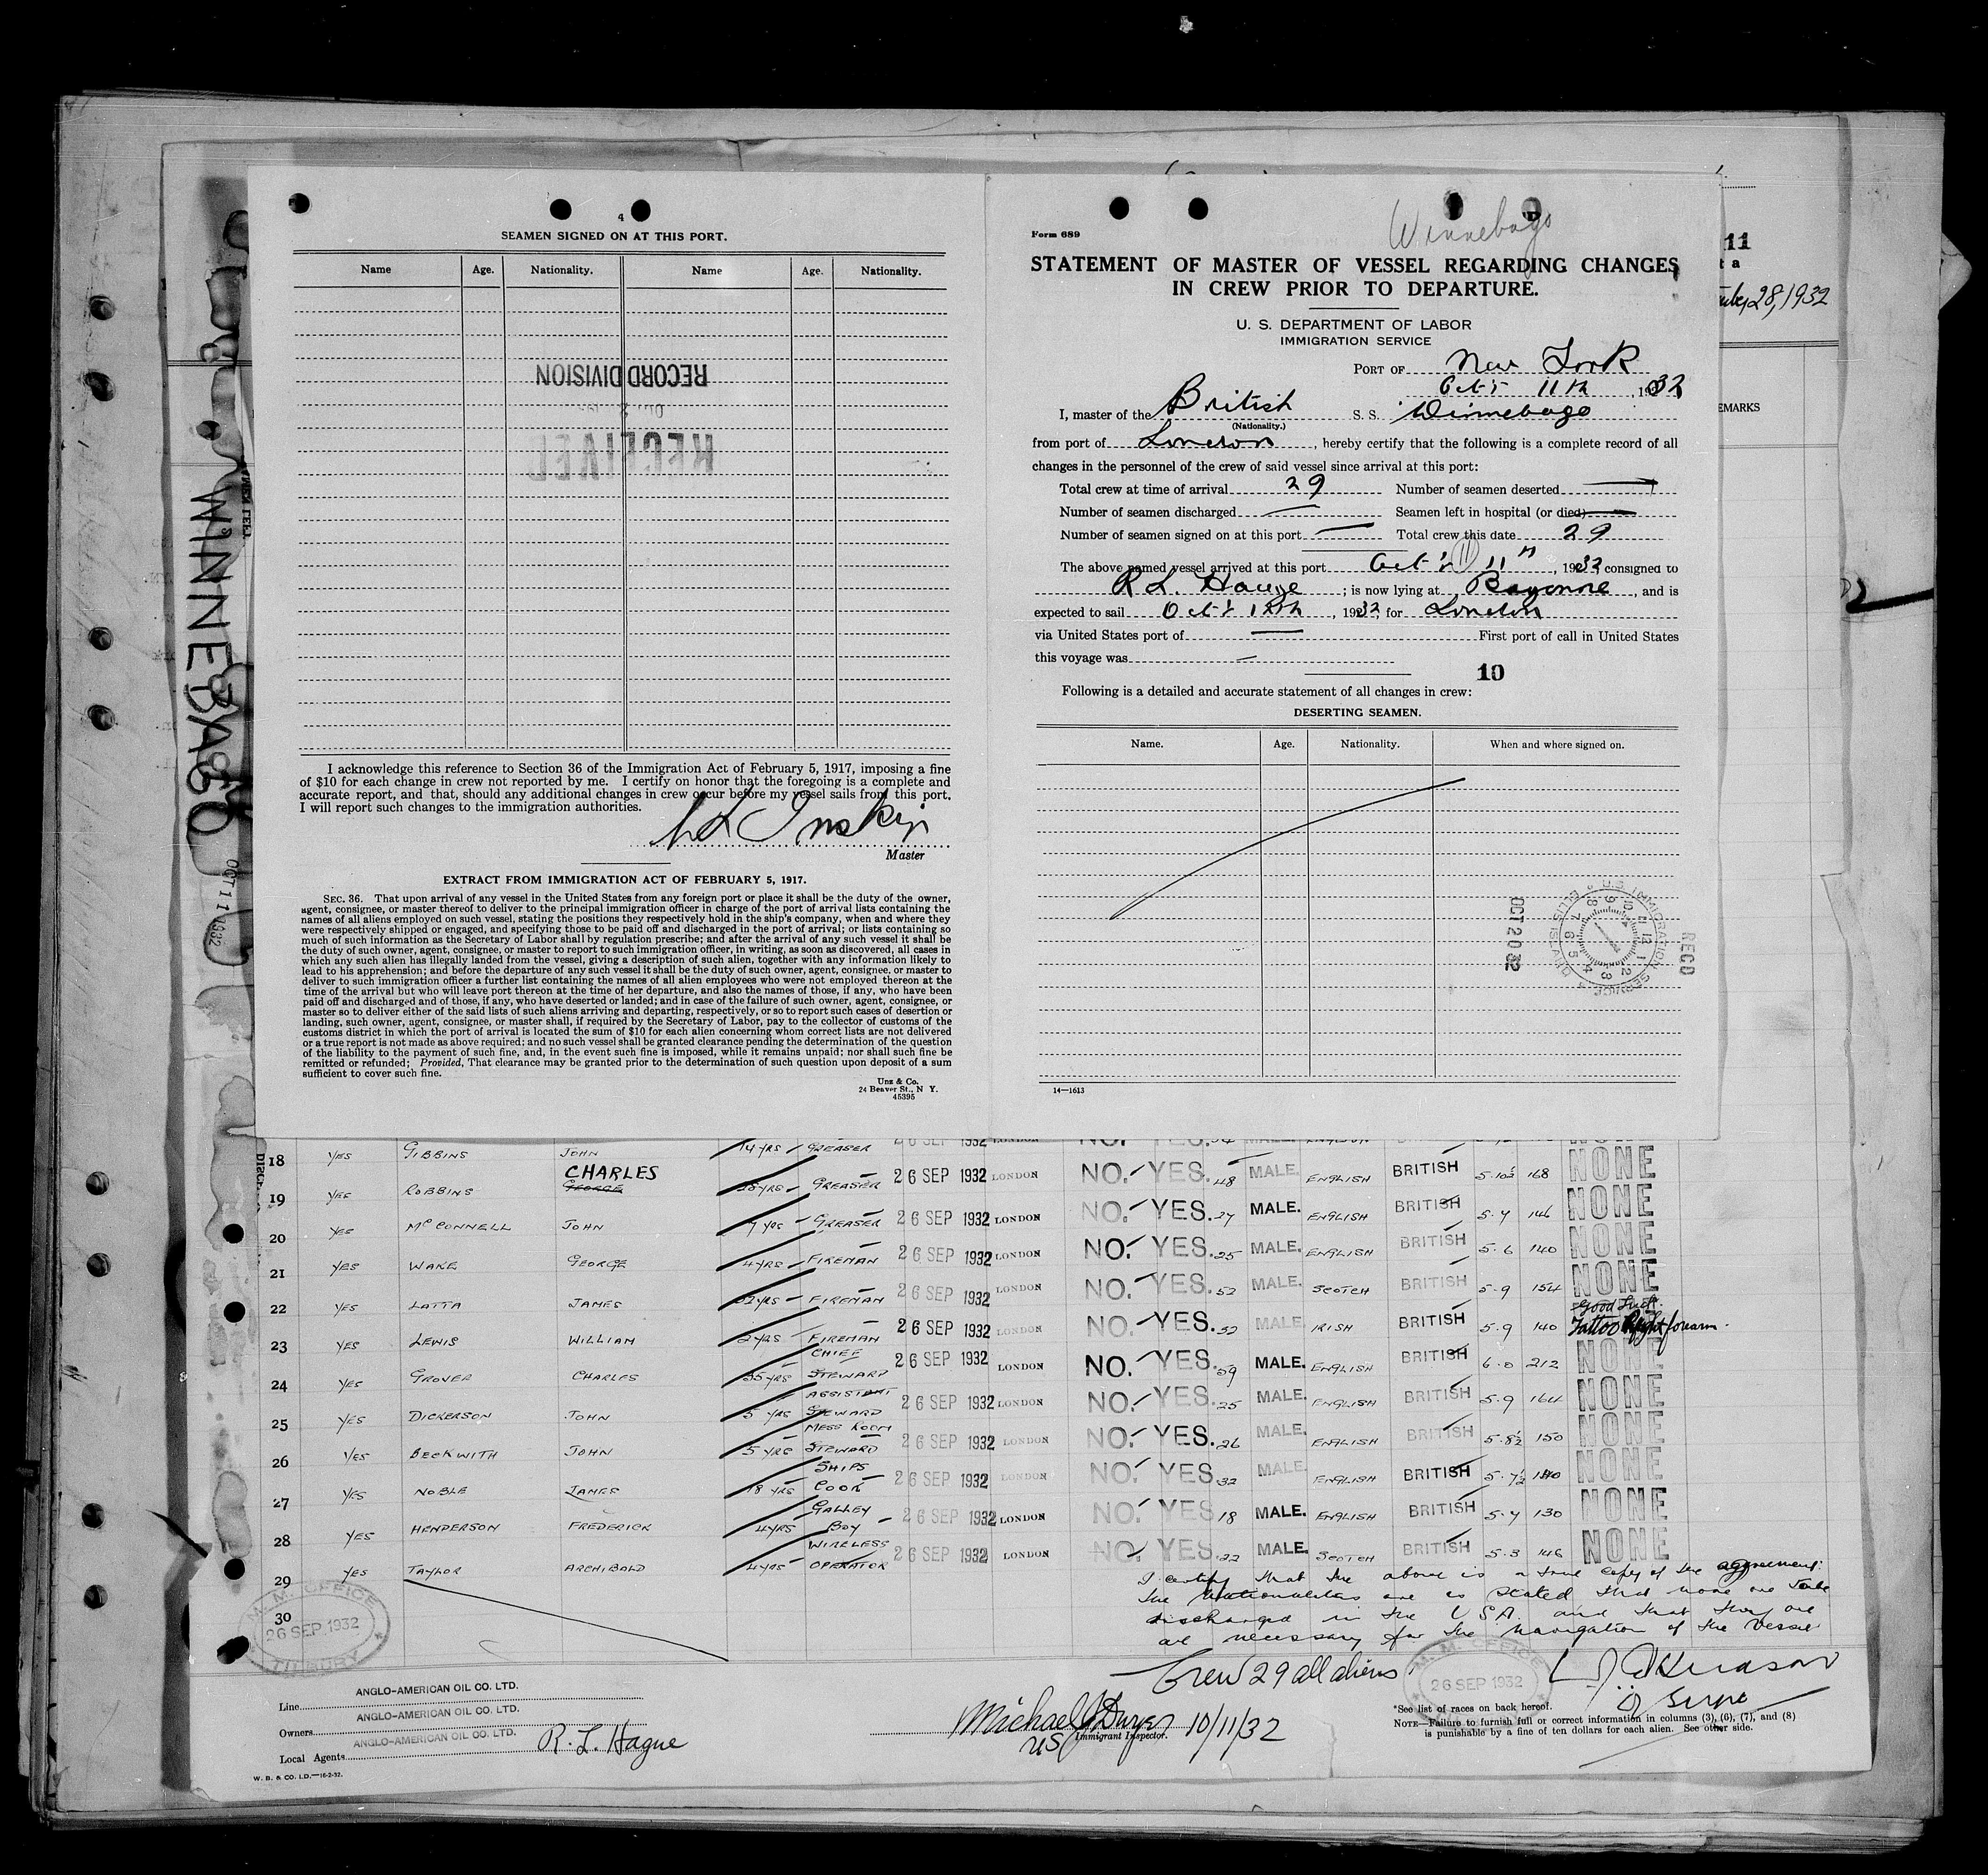 4
SEAMEN SIGNED ON AT THIS PORT.
Name Age. Nationality. Name Age. Nationality.
RECORD DIVISION
RECEIVED
I acknowledge this reference to Section 36 of the Immigration Act of February 5, 1917, imposing a fine
of $10 for each change in crew not reported by me. I certify on honor that the foregoing is a complete and
accurate report, and that, should any additional changes in crew occur before my vessel sails from this port,
I will report such changes to the immigration authorities.
Inskip
Master
EXTRACT FROM IMMIGRATION ACT OF FEBRUARY 5, 1917.
SEC. 36. That upon arrival of any vessel in the United States from any foreign port or place it shall be the duty of the owner,
agent, consignee, or master thereof to deliver to the principal immigration officer in charge of the port of arrival lists containing the
names of all aliens employed on such vessel, stating the positions they respectively hold in the ship's company, when and where they
were respectively shipped or engaged, and specifying those to be paid off and discharged in the port of arrival; or lists containing so
much of such information as the Secretary of Labor shall by regulation prescribe; and after the arrival of any such vessel it shall be
the duty of such owner, agent, consignee, or master to report to such immigration officer, in writing, as soon as discovered, all cases in
which any such alien has illegally landed from the vessel, giving a description of such alien, together with any information likely to
lead to his apprehension; and before the departure of any such vessel it shall be the duty of such owner, agent, consignee, or master to
deliver to such immigration officer a further list containing the names of all alien employees who were not employed thereon at the
time of the arrival but who will leave port thereon at the time of her departure, and also the names of those, if any, who have been
paid off and discharged and of those, if any, who have deserted or landed; and in case of the failure of such owner, agent, consignee, or
master so to deliver either of the said lists of such aliens arriving and departing, respectively, or so to report such cases of desertion or
landing, such owner, agent, consignee, or master shall, if required by the Secretary of Labor, pay to the collector of customs of the
customs district in which the port of arrival is located the sum of $10 for each alien concerning whom correct lists are not delivered
or a true report is not made as above required; and no such vessel shall be granted clearance pending the determination of the question
of the liability to the payment of such fine, and, in the event such fine is imposed, while it remains unpaid; nor shall such fine be
remitted or refunded; Provided, That clearance may be granted prior to the determination of such question upon deposit of a sum
sufficient to cover such fine.
Unz & Co.
24 Beaver St., N Y.
45395
Winnebago
Form 689
STATEMENT OF MASTER OF VESSEL REGARDING CHANGES
IN CREW PRIOR TO DEPARTURE.
U. S. DEPARTMENT OF LABOR
IMMIGRATION SERVICE
PORT OF New York
Oct 11th, 1932
I, master of the British S. S. Winnebago
(Nationality.)
from port of London, hereby certify that the following is a complete record of all
changes in the personnel of the crew of said vessel since arrival at this port:
Total crew at time of arrival 29 Number of seamen deserted —
Number of seamen discharged — Seamen left in hospital (or died) —
Number of seamen signed on at this port — Total crew this date 29
The above named vessel arrived at this port Oct 11 11th, 1932, consigned to
R L. Hague; is now lying at Bayonne, and is
expected to sail Oct 12th, 1932, for London
via United States port of — First port of call in United States
this voyage was —
10
Following is a detailed and accurate statement of all changes in crew:
DESERTING SEAMEN.
Name. Age. Nationality. When and where signed on.
U.S. IMMIGRATION SERVICE ELLIS ISLAND
RECD
OCT 20 32
14—1613
11
t a
28, 1932
EMARKS
WINNEBAGO
OCT 11 1932
18 YES GIBBINS JOHN 14 YRS GREASER 26 SEP 1932 LONDON NO. YES. MALE. ENGLISH BRITISH
19 YES ROBBINS CHARLES GEORGE YRS GREASER 26 SEP 1932 LONDON NO. YES. 48 MALE. ENGLISH BRITISH 5-10½ 168 NONE
20 YES McCONNELL JOHN 7 YRS GREASER 26 SEP 1932 LONDON NO. YES. 27 MALE. ENGLISH BRITISH 5-7 146 NONE
21 YES WAKE GEORGE 4 YRS FIREMAN 26 SEP 1932 LONDON NO. YES. 25 MALE. ENGLISH BRITISH 5-6 140 NONE
22 YES LATTA JAMES 32 YRS FIREMAN 26 SEP 1932 LONDON NO. YES. 52 MALE. SCOTCH BRITISH 5-9 154 NONE
23 YES LEWIS WILLIAM 2 YRS FIREMAN 26 SEP 1932 LONDON NO. YES. 32 MALE. IRISH BRITISH 5-9 140 Good Luck. Tattoo Right forearm.
24 YES GROVER CHARLES 35 YRS CHIEF STEWARD 26 SEP 1932 LONDON NO. YES. 59 MALE. ENGLISH BRITISH 6-0 212 NONE
25 YES DICKERSON JOHN 5 YRS ASSISTANT STEWARD 26 SEP 1932 LONDON NO. YES. 25 MALE. ENGLISH BRITISH 5-9 164 NONE
26 YES BECKWITH JOHN 5 YRS MESS ROOM STEWARD 26 SEP 1932 LONDON NO. YES. 26 MALE. ENGLISH BRITISH 5-8½ 150 NONE
27 YES NOBLE JAMES 18 YRS SHIPS COOK 26 SEP 1932 LONDON NO. YES. 32 MALE. ENGLISH BRITISH 5-7½ 140 NONE
28 YES HENDERSON FREDERICK 4 YRS GALLEY BOY 26 SEP 1932 LONDON NO. YES 18 MALE. ENGLISH BRITISH 5-4 130 NONE
29 YES TAYLOR ARCHIBALD 4 YRS WIRELESS OPERATOR 26 SEP 1932 LONDON NO. YES. 22 MALE. SCOTCH BRITISH 5-3 146 NONE
30
I certify that the above is a true copy of the agreement.
The Nationalities are as stated that none are to be
discharged in the U.S.A. and that they are
all necessary for the navigation of the vessel
M.M. OFFICE
26 SEP 1932
TILBURY
Crew 29 all aliens.
M.M. OFFICE
26 SEP 1932
Line ANGLO-AMERICAN OIL CO. LTD.
Owners ANGLO-AMERICAN OIL CO. LTD.
Local Agents ANGLO-AMERICAN OIL CO. LTD. R. L. Hague
Michael J Dwyer 10/11/32
US Immigrant Inspector.
*See list of races on back hereof.
NOTE—Failure to furnish full or correct information in columns (3), (6), (7), and (8)
is punishable by a fine of ten dollars for each alien. See other side.
W. B. & CO. LD.—16-2-32.